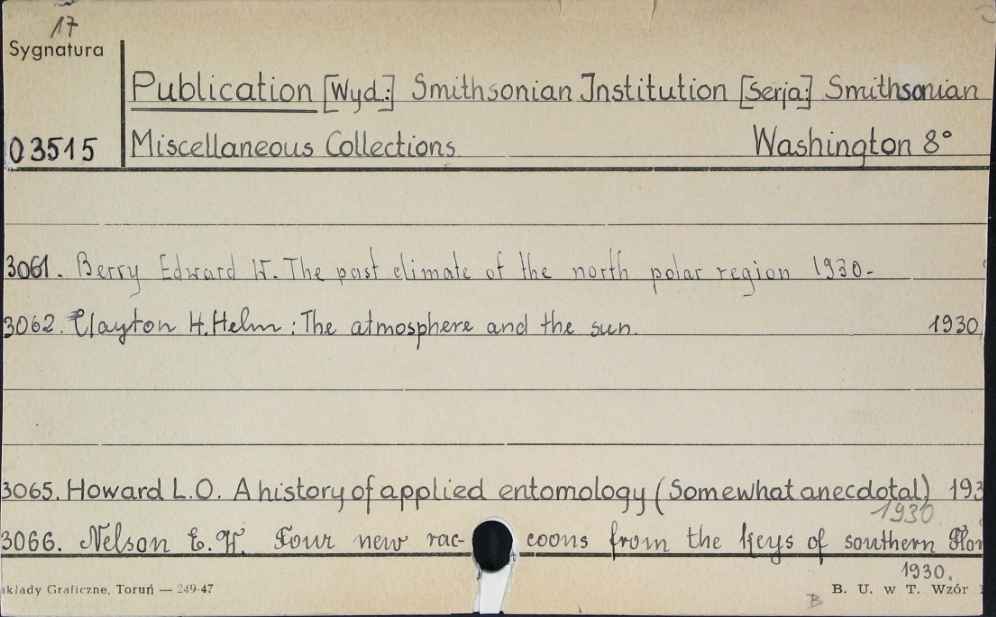 17
Sygnatura
Publication [Wyd.:] Smithsonian Institution [Serja:] Smithsonian
03515 Miscellaneous Collections Washington 8°
3061. Berry Edward W. The past climate of the north polar region 1930-
3062. Clayton H. Helm: The atmosphere and the sun. 1930
3065. Howard L.O. A history of applied entomology (Somewhat anecdotal) 193
1930
3066. Nelson E. W. Four new rac- coons from the Keys of southern Flor
1930.
akłady Graficzne, Toruń — 249-47 B B. U. w T. Wzór